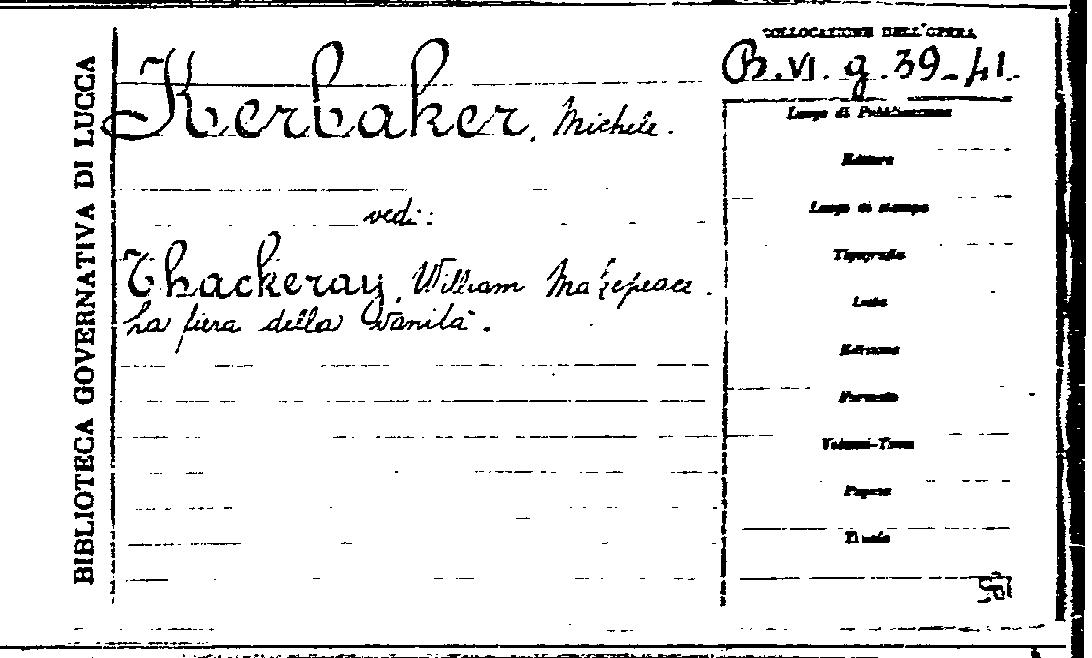 BIBLIOTECA GOVERNATIVA DI LUCCA
COLLOCAZIONE DELL'OPERA
B.VI.g.39-41.
Kerbaker, Michele.
vedi:
Thackeray, William Makepeace.
La fiera della vanità.
Luogo di Pubblicazione
Editore
Luogo di stampa
Tipografia
Data
Edizione
Formato
Volumi-Tomi
Pagine